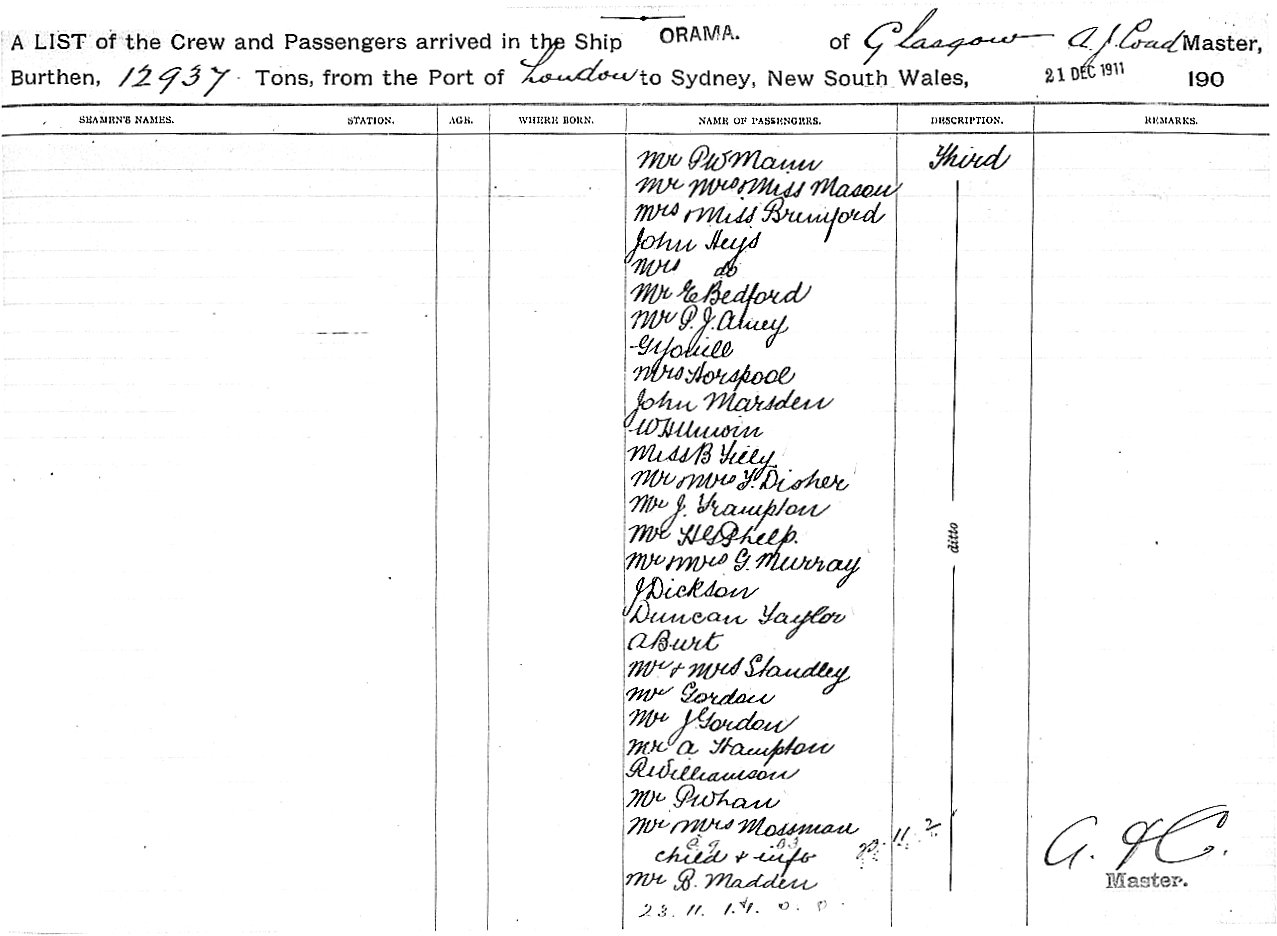 A LIST of the Crew and Passengers arrived in the Ship ORAMA. of Glasgow A.J. Coad Master,
Burthen, 12937 Tons, from the Port of London to Sydney, New South Wales, 21 DEC 1911 190
SEAMEN'S NAMES. STATION. AGE. WHERE BORN. NAME OF PASSENGERS. DESCRIPTION. REMARKS.
Mr P W Mann Third
Mr Mrs & Miss Mason
Mrs & Miss
John Heys
Mrs do
Mr E Bedford
Mr P. J. Amey
G
Mrs Horspool
John Marsden
W H Unwin
Miss B
Mr & Mrs Disher
Mr J. Frampton
Mr H G Phelp. ditto
Mr & Mrs G. Murray
J Dickson
Duncan Taylor
A Burt
Mr & Mrs Standley
Mr Gordon
Mr J Gordon
Mr A Hampton
R Williamson
Mr P Whan
Mr & Mrs Mossman
child & inft
Mr B. Madden
Master.
23. 11. 14. 0. 0.